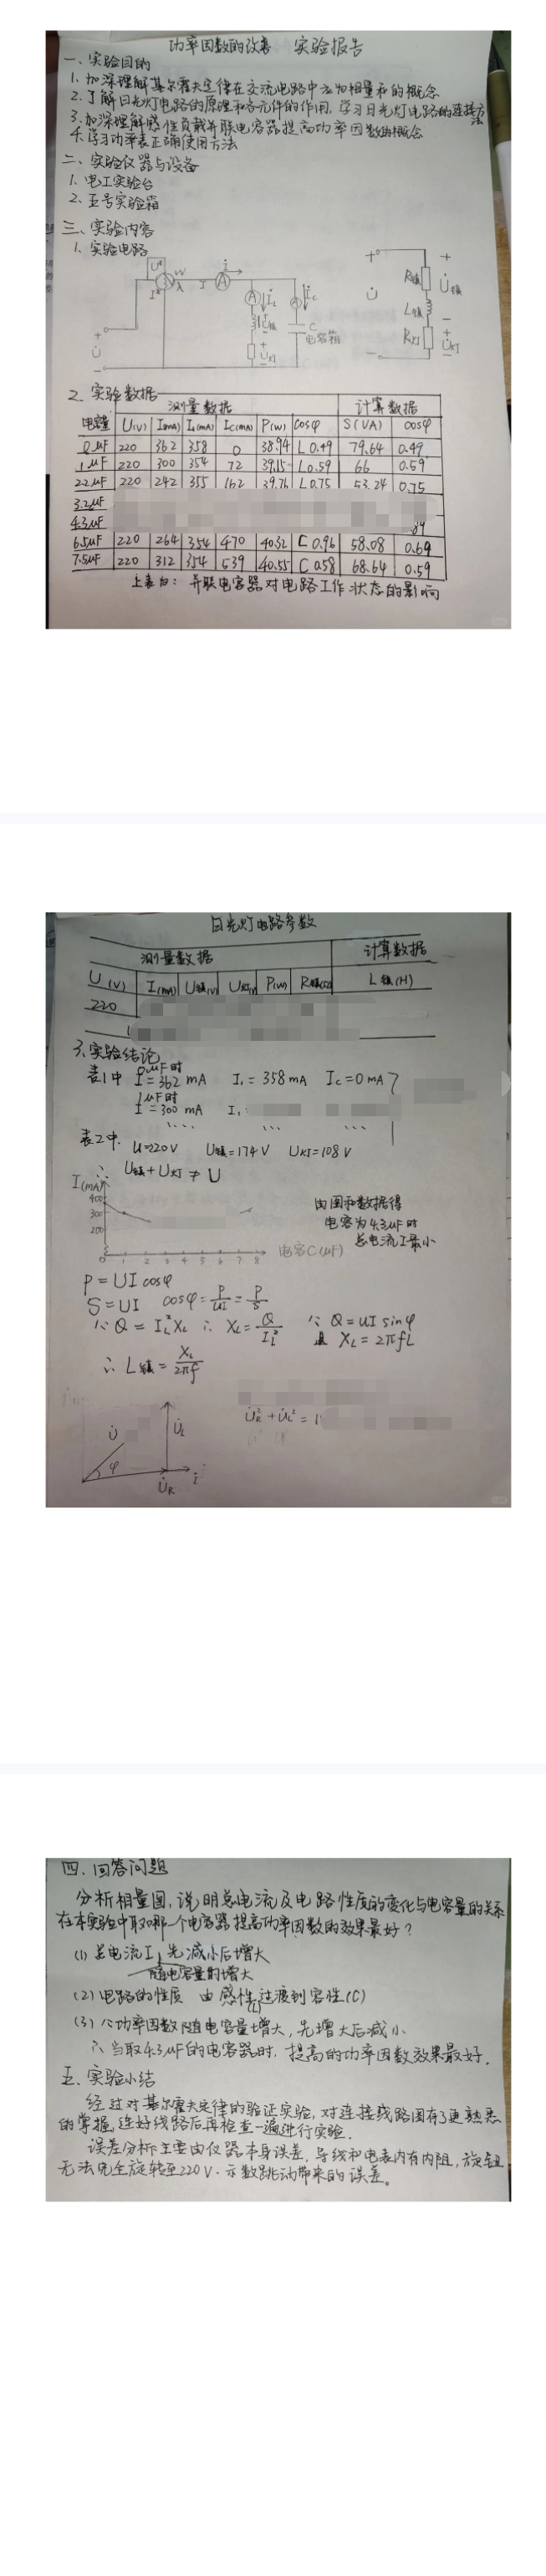 功率因数的改善 实验报告
一、实验目的
1. 加深理解基尔霍夫定律在交流电路中应为相量和的概念
2. 了解日光灯电路的原理和各元件的作用,学习日光灯电路的连接方法
3. 加深理解感性负载并联电容器提高功率因数的概念
4. 学习功率表正确使用方法
二、实验仪器与设备
1. 电工实验台
2. 五号实验箱
三、实验内容
1. 实验电路
U* I* W λ I A İ A İL İc
U̇ U̇镇 U̇灯 C 电容箱
U̇ R镇 L镇 R灯 U̇镇 U̇灯
2. 实验数据
测量数据 计算数据
电容量 U(V) I(mA) IL(mA) Ic(mA) P(W) cosφ S(VA) cosφ
0μF 220 362 358 0 38.94 L 0.49 79.64 0.49
1μF 220 300 354 72 39.15 L0.59 66 0.59
2.2μF 220 242 355 162 39.76 L0.75 53.24 0.75
3.2μF
4.3μF .89
6.5μF 220 264 354 470 40.32 C 0.96 58.08 0.69
7.5μF 220 312 354 539 40.55 C 0.58 68.64 0.59
上表为:并联电容器对电路工作状态的影响
日光灯电路参数
测量数据 计算数据
U(V) I(mA) U镇(V) U灯(V) P(W) R镇(Ω) L镇(H)
220
3. 实验结论
表1中 0μF时
I=362mA I₁=358mA Ic=0mA
1μF时
I=300mA I₁
... ... ...
表2中. U=220V U镇=174V U灯=108V
∴ U镇+U灯≠U
I(mA)
400
300
200
0 1 2 3 4 5 6 7 8 电容C(μF)
由图和数据得
电容为4.3μF时
总电流I最小
P=UI cosφ
S=UI cosφ=P/UI=P/S
∵ Q=I_L²X_L ∴ X_L=Q/I_L² ∵ Q=UI sinφ
且 X_L=2πfL
∴ L镇=X_L/2πf
U̇ φ U̇_L U̇_R İ
U̇_R²+U̇_L²=1
四、回答问题
分析相量图,说明总电流及电路性质的变化与电容量的关系
在本实验中取哪一个电容器提高功率因数的效果最好?
(1) 总电流I先减小后增大
随电容量的增大
(2) 电路的性质 由感性(L)过渡到容性(C)
(3) ∵功率因数随电容量增大,先增大后减小
∴当取4.3μF的电容器时,提高的功率因数效果最好.
五、实验小结
经过对基尔霍夫定律的验证实验,对连接线路图有了更熟悉
的掌握,连好线路后再检查一遍进行实验.
误差分析主要由仪器本身误差,导线和电表内有内阻,旋钮
无法完全旋转至220V.示数跳动带来的误差。